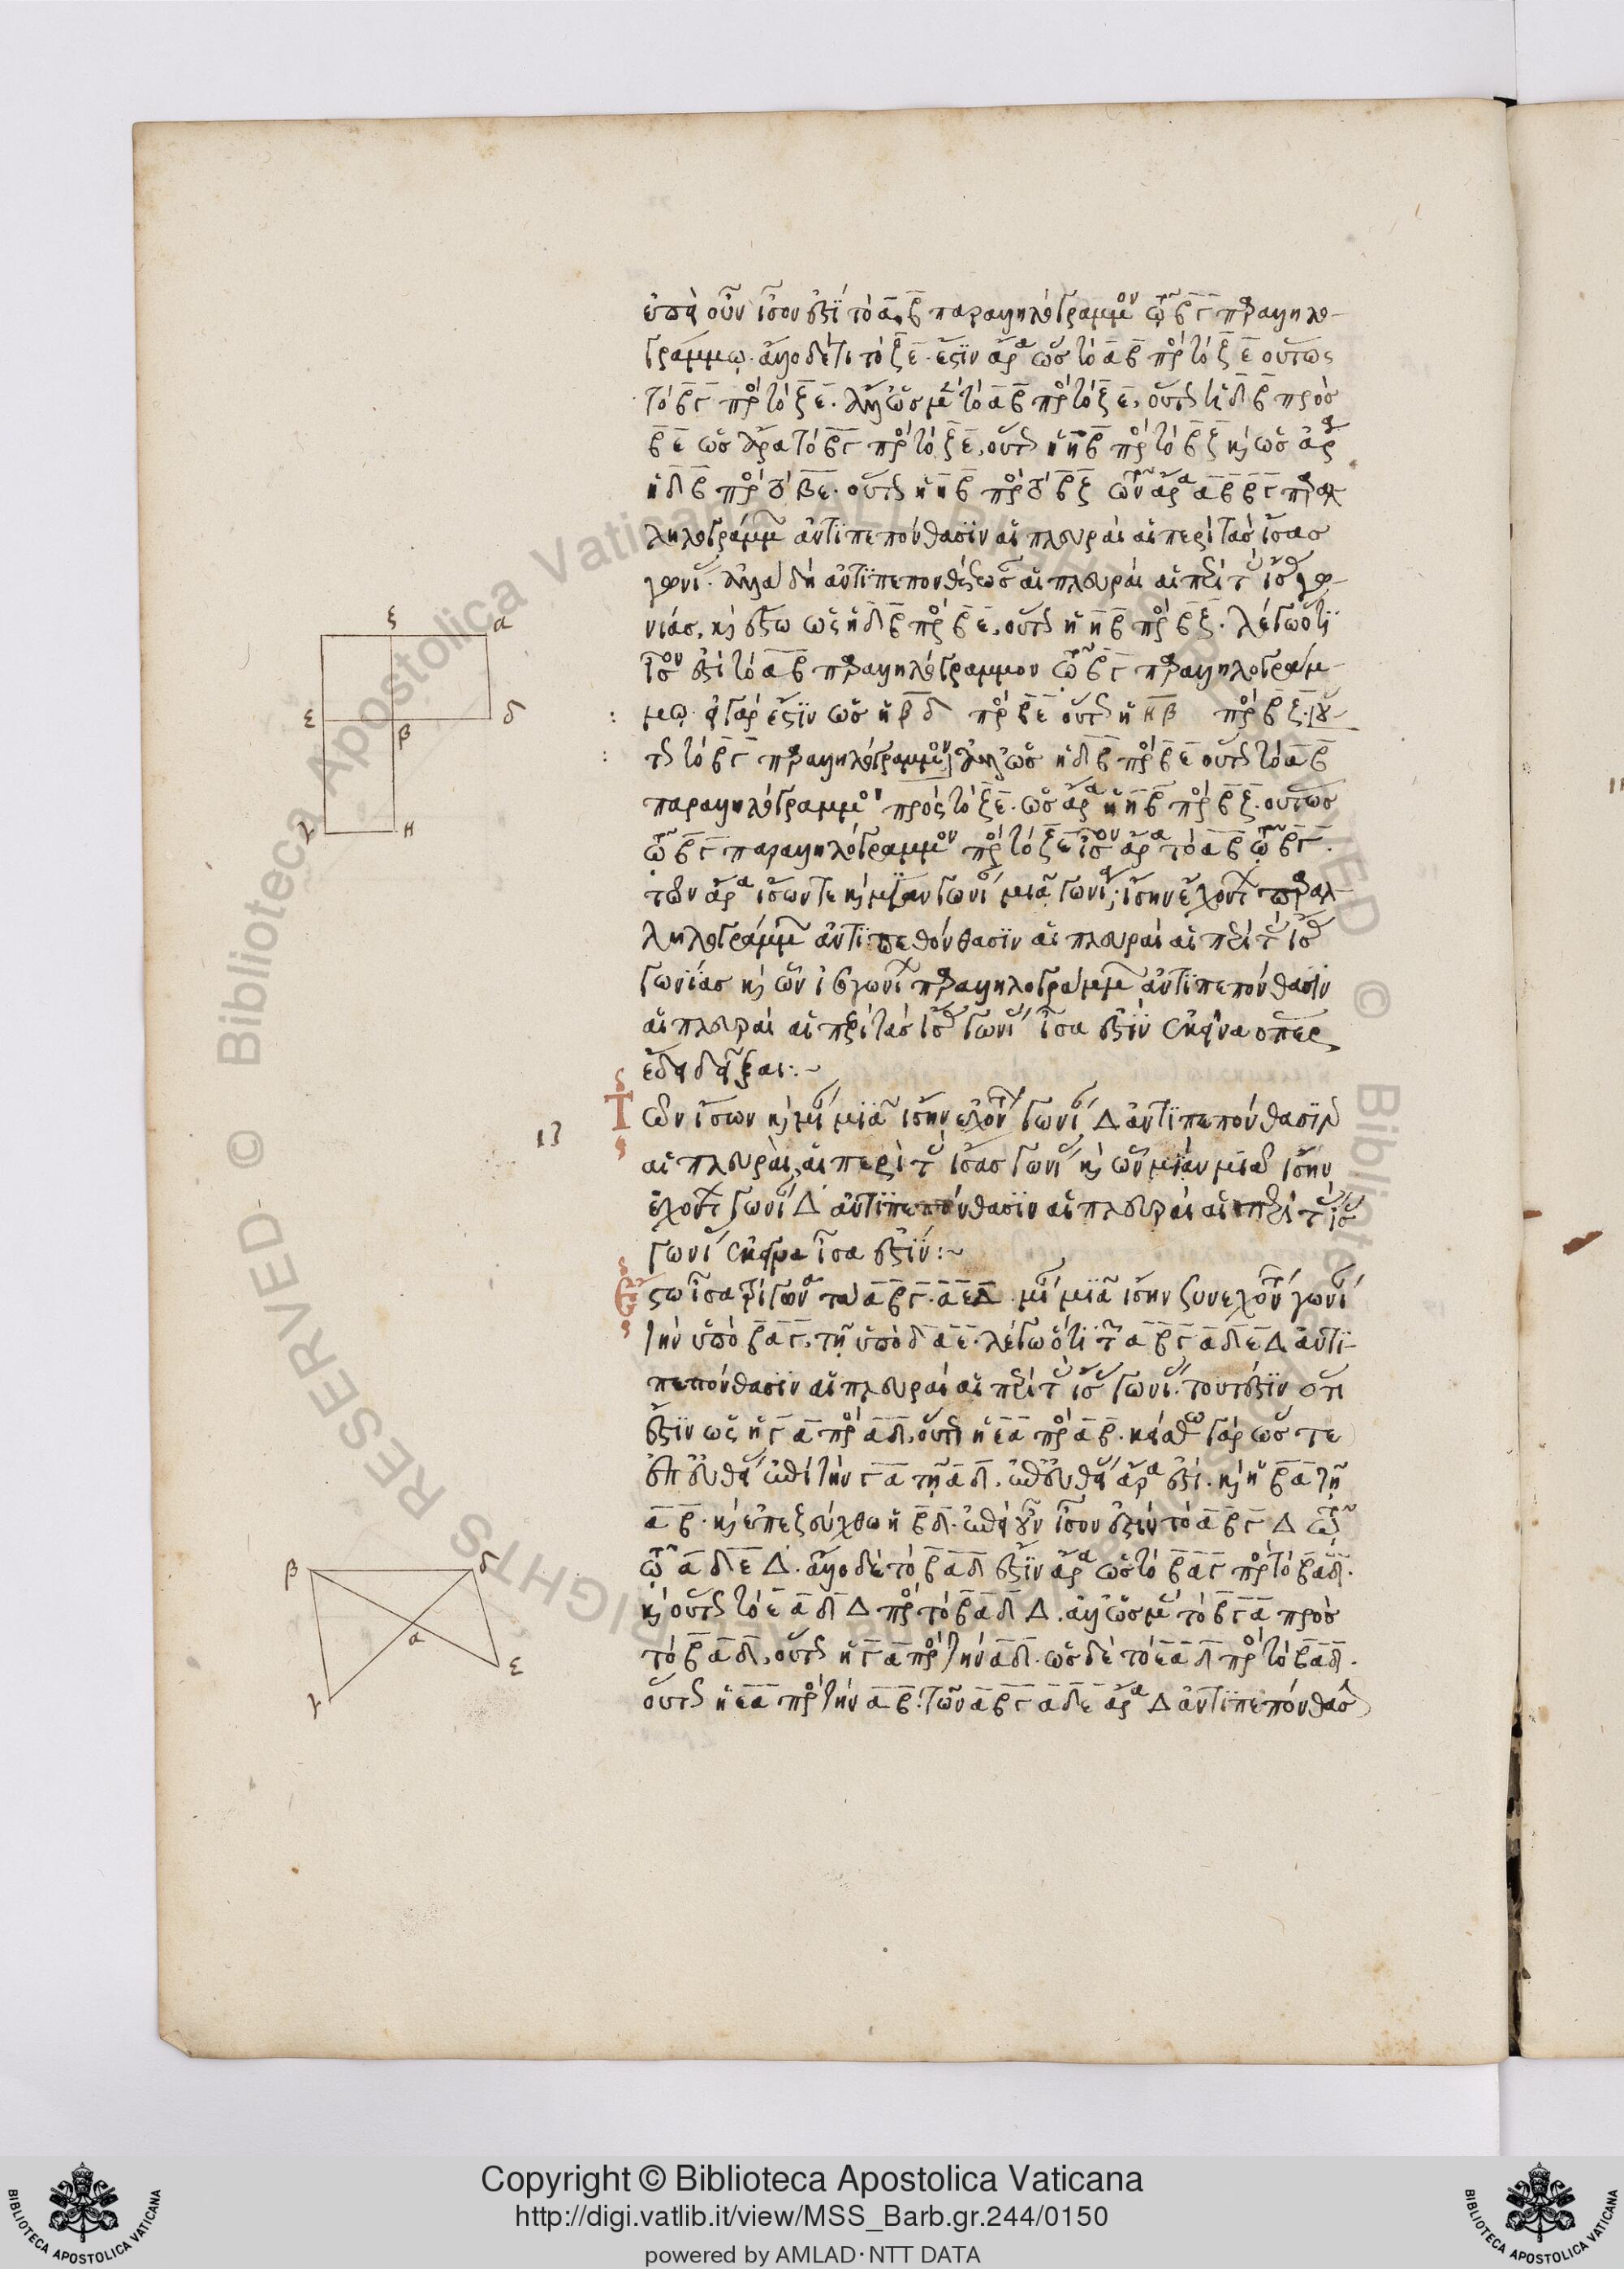 ἐπεὶ οὖν ἴσον ἐστὶ τὸ α β παραλληλόγραμμον τῷ β γ παραλληλο-
γράμμῳ. ἄλλο δέ τι τὸ ζ ε. ἔστιν ἄρα ὡς τὸ α β πρὸς τὸ ζ ε οὕτως
τὸ β γ πρὸς τὸ ζ ε. ἀλλ' ὡς μὲν τὸ α β πρὸς τὸ ζ ε, οὕτως ἡ δ β πρὸς
β ε ὡς ἄρα τὸ β γ πρὸς τὸ ζ ε, οὕτως ἡ η β πρὸς τὸ β ζ καὶ ὡς ἄρα
ἡ δ β πρὸς β ε. οὕτως ἡ η β πρὸς β ζ τῶν ἄρα α β β γ παραλ
ληλογράμμων ἀντιπεπόνθασιν αἱ πλευραὶ αἱ περὶ τὰς ἴσας
γωνίας. ἀλλὰ δὴ ἀντιπεπονθέτωσαν αἱ πλευραὶ αἱ περὶ τὰς ἴσας γω-
νίας, καὶ ἔστω ὡς ἡ δ β πρὸς β ε, οὕτως ἡ η β πρὸς β ζ. λέγω ὅτι
ἴσον ἐστὶ τὸ α β παραλληλόγραμμον τῷ β γ παραλληλογράμ-
μῳ. ἐπεὶ γάρ ἐστιν ὡς ἡ β δ πρὸς β ε οὕτως ἡ η β πρὸς β ζ. οὕ-
τως τὸ β γ παραλληλόγραμμον ἀλλ' ὡς ἡ δ β πρὸς β ε οὕτως τὸ α β
παραλληλόγραμμον πρὸς τὸ ζ ε. ὡς ἄρα ἡ η β πρὸς β ζ. οὕτως
τῷ β γ παραλληλόγραμμον πρὸς τὸ ζ ε ἴσον ἄρα τὸ α β τῷ β γ.
τῶν ἄρα ἴσων τε καὶ μίαν γωνίαν μιᾷ γωνίᾳ ἴσην ἐχόντων παραλ-
ληλογράμμων ἀντιπεπόνθασιν αἱ πλευραὶ αἱ περὶ τὰς ἴσας
γωνίας καὶ ὧν ἰσογωνίων παραλληλογράμμων ἀντιπεπόνθασιν
αἱ πλευραὶ αἱ περὶ τὰς ἴσας γωνίας ἴσα ἐστὶν ἐκεῖνα ὅπερ
ἔδει δεῖξαι:~
13 Τῶν ἴσων καὶ μίαν μιᾷ ἴσην ἐχόντων γωνίαν Δ ἀντιπεπόνθασιν
αἱ πλευραὶ, αἱ περὶ τὰς ἴσας γωνίας καὶ ὧν μίαν μιᾷ ἴσην
ἐχόντων γωνίαν Δ ἀντιπεπόνθασιν αἱ πλευραὶ αἱ περὶ τὰς ἴσας
γωνίας ἐκεῖνα ἴσα ἐστίν:~
Ἔστω ἴσα τρίγωνα τὰ α β γ. α ε Δ. μίαν μιᾷ ἴσην ἔχοντα γωνίαν
τὴν ὑπὸ β α γ, τῇ ὑπὸ δ α ε. λέγω ὅτι τῶν α β γ α δ ε Δ ἀντι-
πεπόνθασιν αἱ πλευραὶ αἱ περὶ τὰς ἴσας γωνίας. τουτέστιν ὅτι
ἔστιν ὡς ἡ γ α πρὸς α δ, οὕτως ἡ ε α πρὸς α β. κείσθω γὰρ ὥστε
ἐπ' εὐθείας εἶναι τὴν γ α τῇ α δ. ἐπ' εὐθείας ἄρα ἐστὶ. καὶ ἡ β α τῇ
α β. καὶ ἐπεζεύχθω ἡ β δ. ἐπεὶ οὖν ἴσον ἐστὶν τὸ α β γ Δ τῷ
τῷ α δ ε Δ. ἄλλο δὲ τὸ β α δ ἔστιν ἄρα ὡς τὸ β α γ πρὸς τὸ β α δ.
καὶ οὕτως τὸ ε α δ Δ πρὸς τὸ β α δ Δ. ἀλλ' ὡς μὲν τὸ β γ α πρὸς
τὸ β α δ, οὕτως ἡ γ α πρὸς τὴν α δ. ὡς δὲ τὸ ε α δ πρὸς τὸ β α δ.
οὕτως ἡ ε α πρὸς τὴν α β. τῶν α β γ α δ ε ἄρα Δ ἀντιπεπόνθασιν
ζ α
ε β δ
γ η
β δ
α
ε
γ
Copyright © Biblioteca Apostolica Vaticana
http://digi.vatlib.it/view/MSS_Barb.gr.244/0150
powered by AMLAD·NTT DATA
BIBLIOTECA APOSTOLICA VATICANA
BIBLIOTECA APOSTOLICA VATICANA